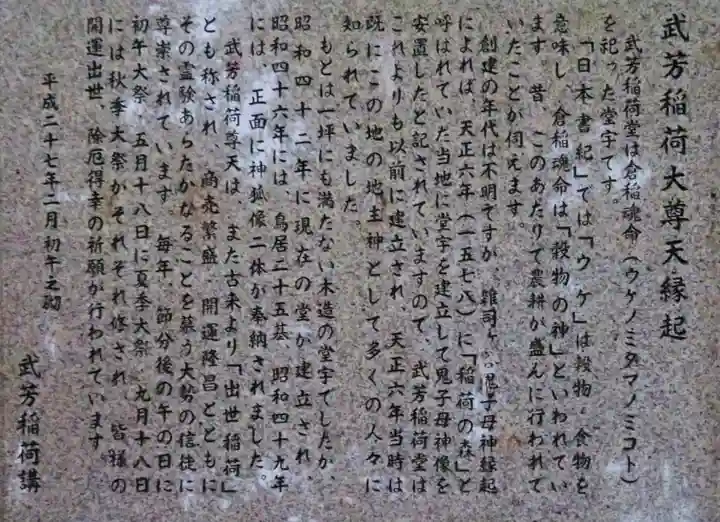 武芳稲荷大尊天縁起
武芳稲荷堂は倉稲魂命(ウケノミタマノミコト)
を祀った堂宇です。
「日本書紀」では「ウケ」は穀物・食物を
意味し、倉稲魂命は「穀物の神」といわれてい
ます 昔、このあたりで農耕が盛んに行われて
いたことが伺えます。
創建の年代は不明ですが、雑司ヶ谷鬼子母神縁起
によれば、天正六年(一五七八)に「稲荷の森」と
呼ばれていた当地に堂宇を建立して鬼子母神像を
安置したと記されていますので、武芳稲荷堂は
これよりも以前に建立され、天正六年当時は
既にこの地の地主神として多くの人々に
知られていました。
もとは一坪にも満たない木造の堂宇でしたが、
昭和四十二年に現在の堂が建立され、
昭和四十六年には、鳥居二十五基、昭和四十九年
には、正面に神狐像二体が奉納されました。
武芳稲荷尊天は、また古来より「出世稲荷」
とも称され、商売繁盛、開運隆昌とともに
その霊験あらたかなることを慕う大勢の信徒に
尊崇されています。毎年、節分後の午の日に
初午大祭、五月十八日に夏季大祭、九月十八日
には秋季大祭がそれぞれ修され、皆様の
開運出世、除厄得幸の祈願が行われています。
平成二十七年二月初午之砌
武芳稲荷講